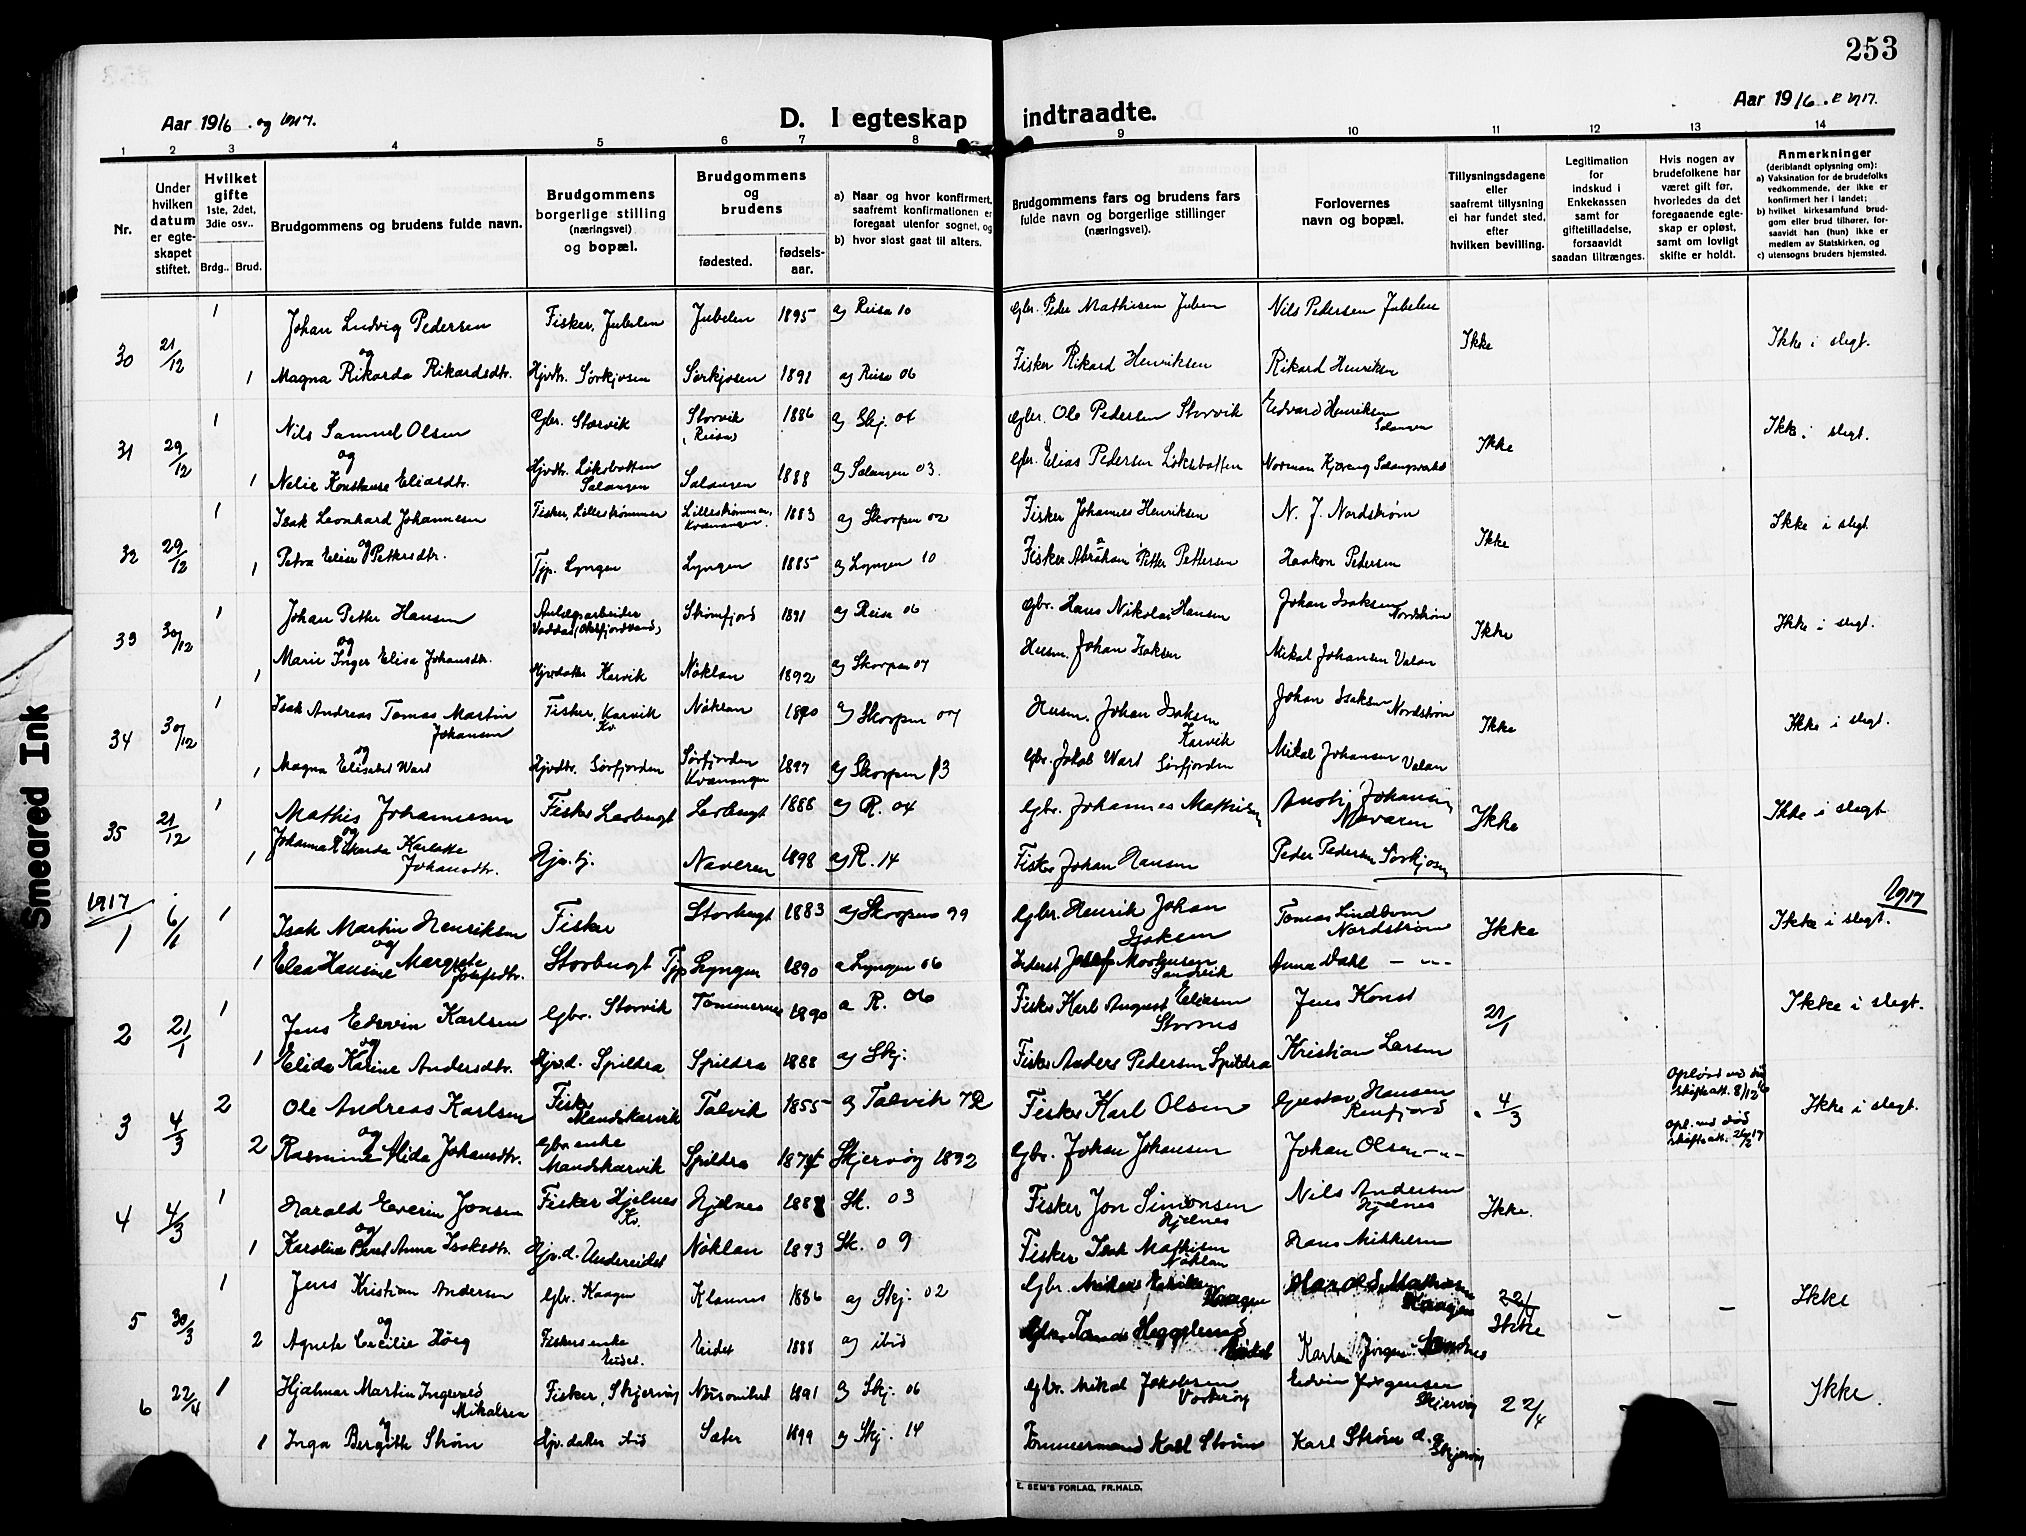 253
Aar 1916 . og 1917.
D. I egteskap indtraadte.
Aar 1916. e 1917.
1 2 3 4 5 6 7 8 9 10 11 12 13 14
Nr.
Under hvilken datum er egte-skapet stiftet.
Hvilket gifte 1ste, 2det, 3die osv..
Brdg.. Brud.
Brudgommens og brudens fulde navn.
Brudgommens borgerlige stilling (næringsvei) og bopæl.
Brudgommens og brudens
fødested. fødsels-aar.
a) Naar og hvor konfirmert, saafremt konfirmationen er foregaat utenfor sognet, og
b) hvor sidst gaat til alters.
Brudgommens fars og brudens fars fulde navn og borgerlige stillinger (næringsvei).
Forlovernes navn og bopæl.
Tillysningsdagene eller saafremt tillysning ei har fundet sted, efter hvilken bevilling.
Legitimation for indskud i Enkekassen samt for giftetilladelse, forsaavidt saadan tiltrænges.
Hvis nogen av brudefolkene har været gift før, hvorledes da det foregaaende egte-skap er opløst, samt om lovligt skifte er holdt.
Anmerkninger (deriblandt oplysning om):
a) Vaksination for de brudefolks vedkommende, der ikke er konfirmert her i landet;
b) hvilket kirkesamfund brud-gom eller brud tilhører, for-saavidt han (hun) ikke er medlem av Statskirken, og
c) utensogns bruders hjemsted.
1 Johan Ludvig Pedersen Fisker, Jubelen Jubelen 1895 a) Reisa 10 Gbr. Peder Mathisen Nils Pedersen Jubelen
30 21/12 og Ikke Ikke i slegt.
1 Magna Rikarda Rikardsdtr. Hjvdtr. Sørkjosen Sørkjosen 1891 a) Reisa 06 Fisker Rikard Henriksen Rikard Henriksen
1 Nils Samuel Olsen Gbr. Storvik Storvik (Reisa) 1886 a) Skj. 01 Gbr. Ole Pedersen Storvik Edvard Henriksen Salangen
31 29/12 og Ikke Ikke i slegt.
1 Nelie Konstanse Eliasdtr. Hjvdtr. Løksbotten Salangen Salangen 1888 a) Salangen 03. Gbr. Elias Pedersen Løksbotten Norman Kjæreng
1 Isak Leonhard Johannesen Fisker, Lillestrømmen Lillestrømmen, Kvænangen. 1883 a) Skorpen 02 Fisker Johannes Henriksen N. J. Nordstrøm
32 29/12 og Ikke Ikke i slegt.
1 Petra Elise Pettersdtr. Tjp. Lyngen Lyngen 1885 a) Lyngen 10 Fisker Abraham Petter Pettersen Haakon Pedersen
1 Johan Petter Hansen Anlægsarbeider Vaddas (Oksfjordvand) Strømfjord 1891 a) Reisa 06 Gbr. Hans Nikolai Hansen Johan Isaksen Nordstrøm
33 30/12 og Ikke Ikke i slegt.
1 Marie Inger Elisa Johansdtr. Hjvdatter Karvik Nøklan 1892 a) Skorpen 07 Husm. Johan Isaksen Mikal Johansen Valan
1 Isak Andreas Tomas Martin Johansen Fisker, Karvik Kv. Nøklan 1890 a) Skorpen 07 Husm. Johan Isaksen Karvik Johan Isaksen Nordstrøm
34 30/12 og Ikke Ikke i slegt.
1 Magna Elisabet Wart Hjvdtr. Sørfjorden Sørfjorden Kvænangen 1897 a) Skorpen 13 Gbr. Jakob Wart Sørfjorden Mikal Johansen Valan
1 Mathis Johannesen Fisker Leirbugt Leirbugt 1888 a) R. 04 Gbr. Johannes Mathisen Johansen Navaren
35 21/12 og Ikke Ikke i slegt
1 Johanna Rikarda Karlotte Johansdtr. Hjv. hj. Naveren 1898 a) R. 14 Fisker Johan Hansen Peder Pedersen Sørkjosen
1917 1917
1 6/1 1 Isak Martin Henriksen Fisker Storbugt 1883 a) Skorpen 99 Gbr. Henrik Johan Isaksen Tomas Lindbom Nordstrøm Ikke Ikke i slegt.
og
1 Elea Hansine Margrete Josefsdtr. Storbugt Tjp Lyngen 1890 a Lyngen 06 Inderst Josef Mortensen Sandvik Anna Dahl - " -
1 Jens Edevin Karlsen Gbr. Storvik Tømmernes 1890 a R. 06 Fisker Karl August Eliasen Storvik Jens Konst
2 21/1 og 21/1 Ikke i slegt.
1 Elida Karine Andersdtr. Hjv.d. Spildra Spildra 1888 a) Skj. Fisker Anders Pedersen Spildra Kristian Larsen
2 Ole Andreas Karlsen Fisker Mandskarvik Talvik 1855 a) Talvik 72 Fisker Karl Olsen Gustav Hansen Reinfjord Opløst ved død skifteatt. 8/12 16
3 4/3 og 4/3 Ikke i slegt.
2 Rasmine Alida Johansdtr. Gbr enke Mandskarvik Spildra 1874 Skjervøy 1892 Gbr. Johan Johansen Johan Olsen - " - Opl. ved død skifteatt. 26/2 17
1 Harald Everin Jonsen Fisker Hjelnes Kv. Hjelnes 1888 Sk. 03 Fisker Jon Simonsen Hjelnes Nils Andersen Hjelnes
4 4/3 og Ikke.
1 Karoline Beret Anna Isaksdtr. Hjv.d. Undereidet Nøklan 1893 Sk. 09 Fisker Isak Mathisen Nøklan Hans Mikkelsen
1 Jens Kristian Andersen Gbr. Kaagen Klaunes 1886 a) Skj. 02 Gbr. Kaagen Kaagen
5 30/3 og 22/4 Ikke - - Ikke
2 Agnete Cecilie Høeg Fiskers enke Eidet. Eidet 1888 a) ibid Gbr. Eidet Karl Jørgen
1 Hjalmar Martin Ingemod Mikalsen Fisker, Skjervøy 1891 a) Skj. 06 Gbr. Mikal Jakobsen Vorterøy Edvin Jørgensen Skjervøy
6 22/4 og 22/4 - - Ikke.
1 Inga Bergitte Strøm Hjv. datter ibid Sæter 1899 a) Skj. 14 Tømmermand Karl Strøm Karl Strøm d. æ. Skjervøy
E. SEM'S FORLAG, FR.HALD.
Smeared Ink